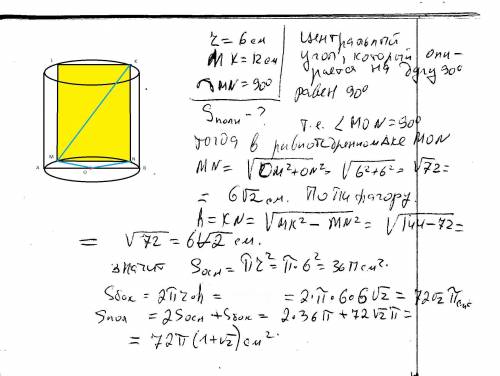 L K
M N
A O B
r = 6 см
MK = 12 см
◠MN = 90°
Sполн - ?
Центральный
угол, который опи-
рается на дугу 90°
равен 90°
т.е. ∠MON = 90°
тогда в равнобедренном ∆ке MON
MN = √OM²+ON² = √6²+6² = √72 =
= 6√2 см. По Пифагору.
h = KN = √MK² – MN² = √144–72 =
= √72 = 6√2 см.
значит Sосн = πr² = π·6² = 36π см².
Sбок = 2πr·h = = 2·π·6·6√2 = 72√2 π см²
Sпол = 2Sосн + Sбок = 2·36π + 72√2π =
= 72π(1+√2) см².